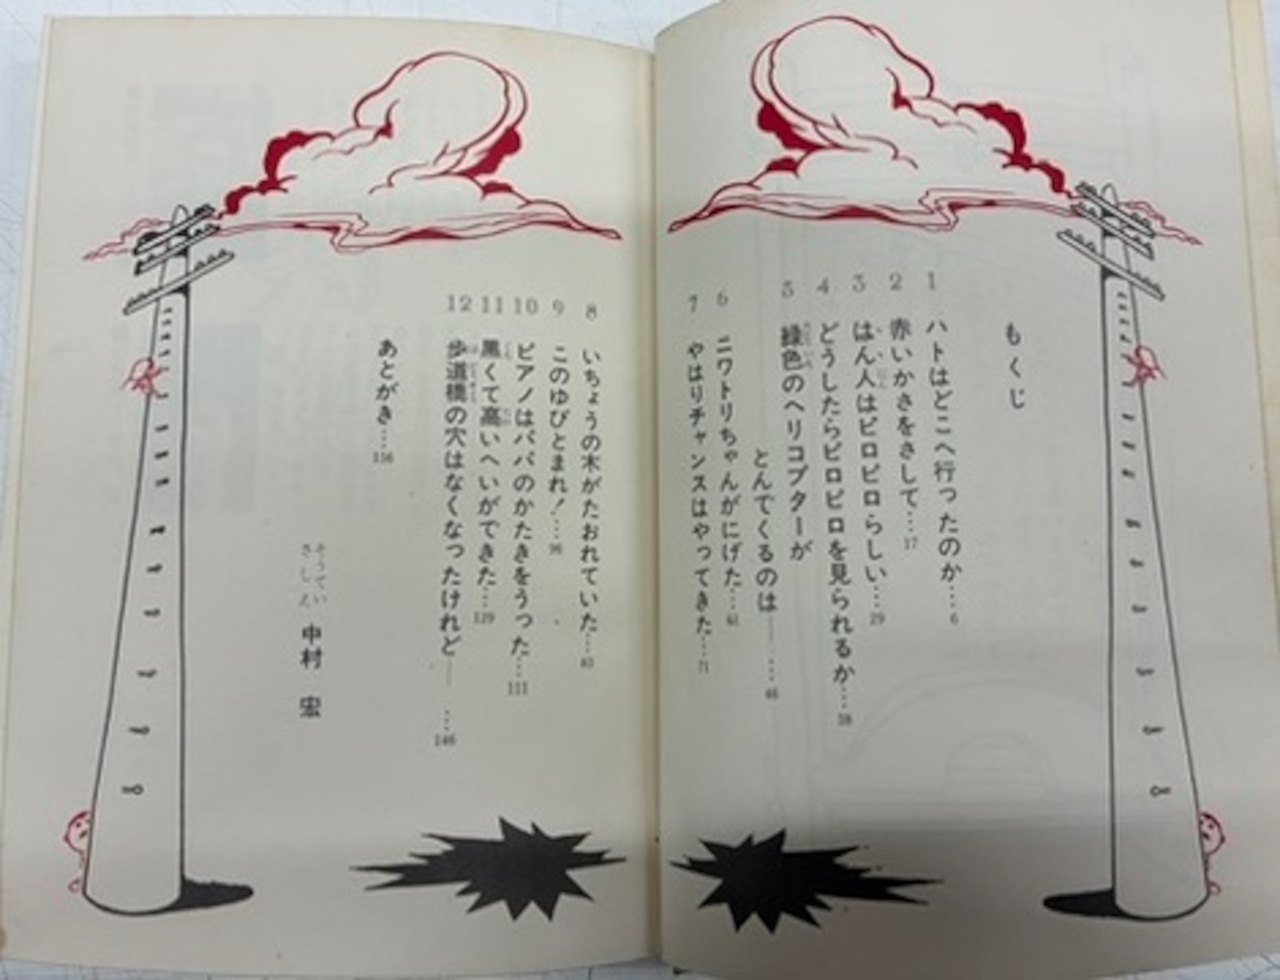 もくじ
1 ハトはどこへ行ったのか…6
2 赤いかさをさして…17
3 はん人はピロピロらしい…29
4 どうしたらピロピロを見られるか…38
5 緑色のヘリコプターが
とんでくるのは——…46
6 ニワトリちゃんがにげた…61
7 やはりチャンスはやってきた…71
8 いちょうの木がたおれていた…83
9 このゆびとまれ!…96
10 ピアノはパパのかたきをうった…111
11 黒くて高いへいができた…129
12 歩道橋の穴はなくなったけれど——…146
あとがき…156
そうてい
さしえ 中村 宏